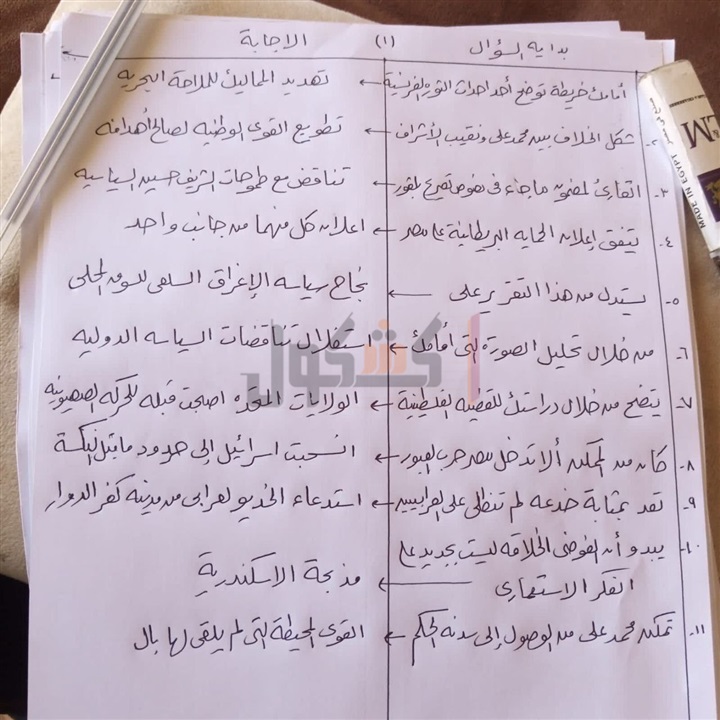 بداية السؤال (١) الاجابة
١- أمامك خريطة توضح أحد احداث الثورة الفرنسية ← تهديد المماليك للملاحة البحرية
٢- شكل الخلاف بين محمد على ونقيب الأشراف ← تطويع القوى الوطنية لصالح أهدافه
٣- القارئ لمضمون ما جاء فى نصوص تصريح بلفور ← تناقض مع طموحات الشريف حسين السياسية
٤- يتفق إعلان الحماية البريطانية على مصر ← اعلان كل منهما من جانب واحد
٥- يستدل من هذا التقرير على ← نجاح سياسه الإغراق السلعى للسوق المحلى
٦- من خلال تحليل الصورة التى أمامك ← استغلال تناقضات السياسه الدولية
كشكول
٧- يتضح من خلال دراستك للقضية الفلسطينية ← الولايات المتحده اصبحت قبله للحركه الصهيونيه
٨- كان من الممكن ألا تدخل مصر حرب العبور ← انسحبت اسرائيل إلى حدود ما قبل النكسة
٩- تعد بمثابة خدعه لم تنطلى على العرابيين ← استدعاء الخديو لعرابى من مدينه كفر الدوار
١٠- يبدو أن الفوضى الخلاقه ليست بجديد على
الفكر الاستعمارى ← مذبحة الاسكندرية
١١- تمكن محمد على من الوصول إلى سدنه الحكم ← القوى المحيطة التى لم يلقى لها بال
EM
MADE IN EGYPT